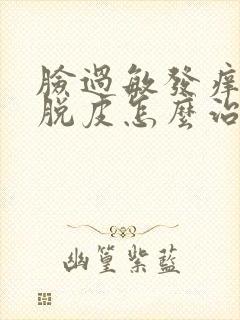 臉過敏發痒
脫皮怎麼治
幽篁紫藍